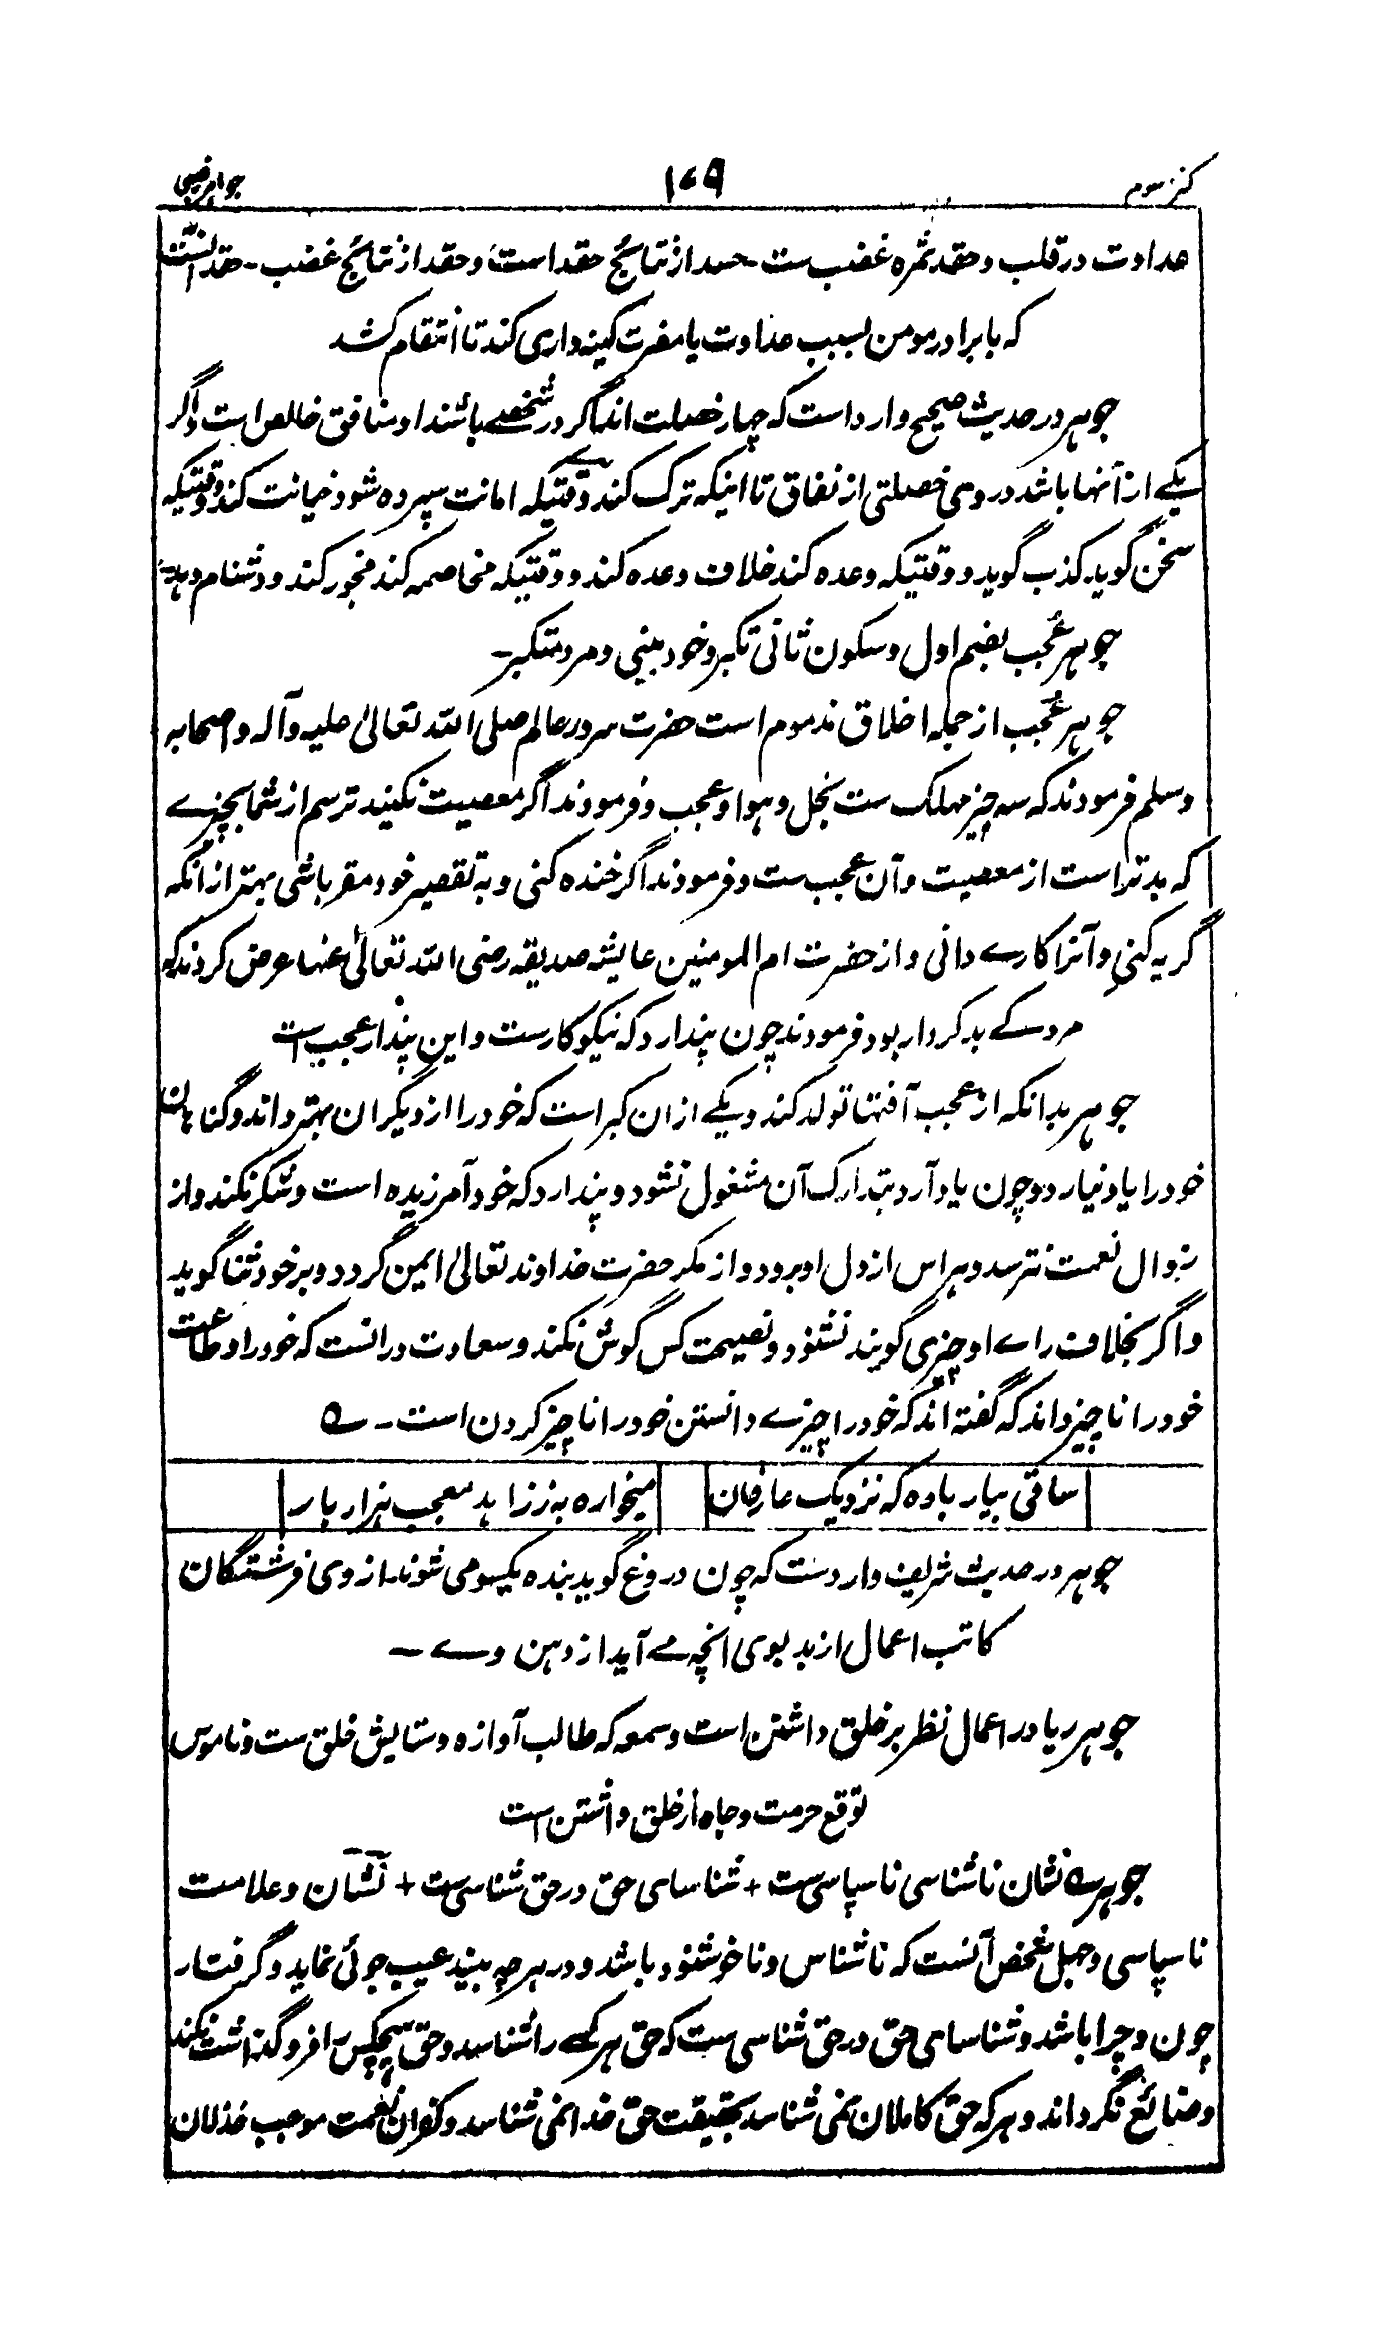 کنز سوم
۱۷۹
جواهر غیبی
عداوت در قلب و حقد ثمره غضب ست۔ حسد از نتائج حقد است و حقد از نتائج غضب۔ حقد آنست
که با برادر مومن بسبب عداوت یا مضرت کینه داری کند تا انتقام کشد
جوهر در حدیث صحیح وارد است که چهار خصلت اند اگر در شخصے باشند او منافق خالص است و اگر
یکے از آنها باشد در وی خصلتی از نفاق تا اینکه ترک کند وقتیکه امانت سپرده شود خیانت کند و وقتیکه
سخن گوید کذب گوید و وقتیکه وعده کند خلاف وعده کند و وقتیکه مخاصمه کند فجور کند و دشنام دهد
جوهر عُجب بضم اول و سکون ثانی تکبر و خود بینی و مرد متکبر۔
جوهر عُجب از جمله اخلاق مذموم است حضرت سرور عالم صلی الله تعالیٰ علیه و آله و اصحابه
وسلم فرمودند که سه چیز مهلک ست بخل و هوا و عجب و فرمودند اگر معصیت نکنید ترسم از شما بچیزے
که بدتر است از معصیت و آن عجب ست و فرمودند اگر خنده کنی و به تقصیر خود مقر باشی بهتر از آنکه
گریه کنی و آنرا کارے دانی و از حضرت ام المومنین عایشه صدیقه رضی الله تعالیٰ عنها عرض کردند که
مرد کے بد کردار بود فرمودند چون پندارد که نیکو کارست و این پندار عجب است
جوهر بدانکه از عجب آفتها تولد کند و یکے ازان کبر است که خود را از دیگران بهتر داند و گناهان
خود را یاد نیارد و چون یاد آرد بتدارک آن مشغول نشود و پندارد که خود آمرزیده است و شکر نکند و از
زوال نعمت نترسد و هراس از دل او برود و از مکر حضرت خداوند تعالیٰ ایمن گردد و بر خود ثنا گوید
و اگر بخلاف راے او چیزی گویند نشنود و نصیحت کس گوش نکند و سعادت درانست که خود را و طاعت
خود را ناچیز داند که گفته اند که خود را چیزے دانستن خود را ناچیز کردن است۔ ؎
ساقی بیار باده که نزدیک عارفان میخواره به ز زاهد معجب هزار بار
جوهر در حدیث شریف واردست که چون دروغ گوید بنده یکسو می شوند از وی فرشتگان
کاتب اعمال از بد بوی آنچه مے آید از دهن وے ۔
جوهر ریا در اعمال نظر بر خلق داشتن است و سمعه که طالب آوازه و ستایش خلق ست و ناموس
توقع حرمت و جاه از خلق داشتن است
جوهر ؎ نشان ناشناسی ناسپاسی ست + شناسای حق در حق شناسی ست + نشان و علامت
ناسپاسی و جهل شخص آنست که ناشناس و ناخوشنود باشد و در هر چه بیند عیب جوئی نماید و گرفتار
چون و چرا باشد و شناسای حق در حق شناسی ست که حق هر کسے را شناسد و حق هیچکس را فروگذاشت نکند
و ضائع نگرداند و هر که حق کاملان نمی شناسد بحقیقت حق خدا نمی شناسد و کفران نعمت موجب خذلان